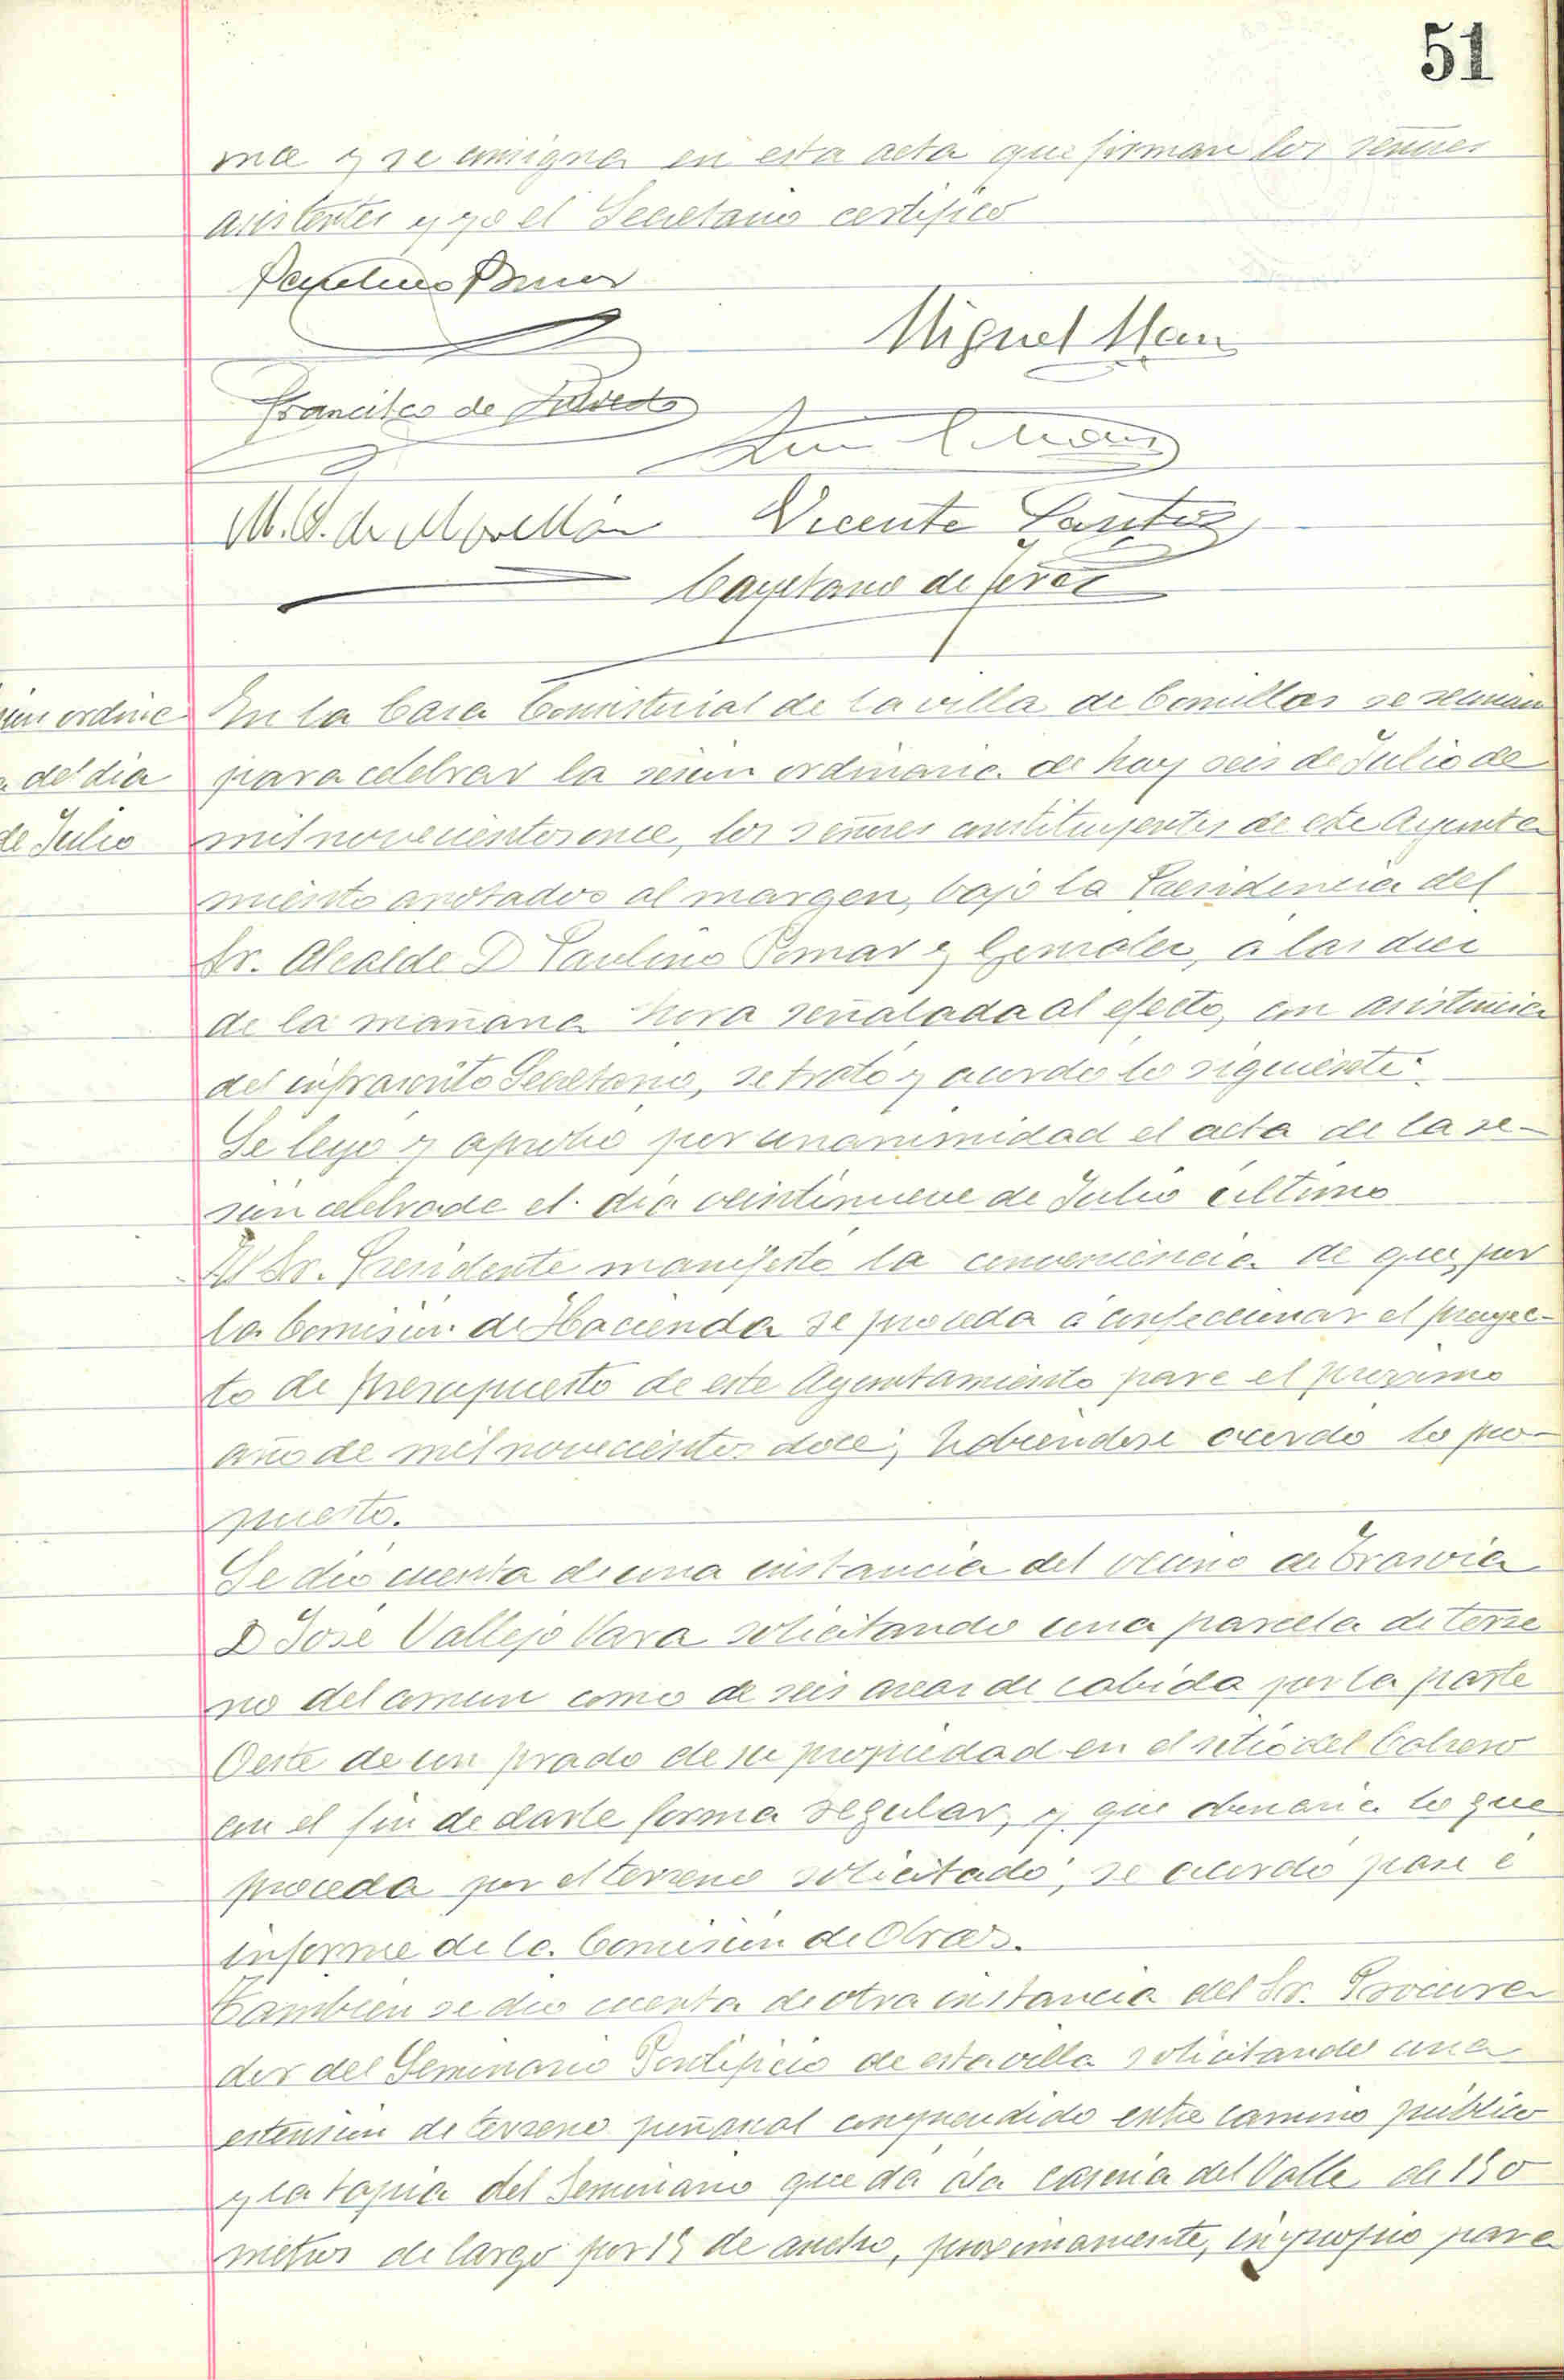 51
ma y se consigna en esta acta que firman los señores
asistentes y yo el Secretario certifico
Paulino Pomar
Miguel Man
Francisco de
M. S. de Movellán Vicente Santos
Cayetano de
ión ordina
a del dia
de Julio
En la Casa Consistorial de la villa de Comillas se reunen
para celebrar la sesion ordinaria de hoy seis de Julio de
mil novecientos once, los señores constituyentes de este Ayunta
miento anotados al margen, bajo la Presidencia del
Sr. Alcalde D Paulino Pomar y Gonzalez, a las diez
de la mañana hora señalada al efecto, con asistencia
del infrascrito Secretario, se trató y acordó lo siguiente.
Se leyó y aprobó por unanimidad el acta de la se-
sion celebrada el dia veintinueve de Julio último
El Sr. Presidente manifestó la conveniencia de que por
la Comision de Hacienda se proceda á confeccionar el proyec-
to de presupuesto de este Ayuntamiento para el proximo
año de mil novecientos doce; habiendose acordó lo pro-
puesto.
Se dió cuenta de una instancia del vecino de Trasvia
D José Vallejo Vara solicitando una parcela de terre
no del comun como de seis areas de cabida por la parte
Oeste de un prado de su propiedad en el sitio del Cotrero
con el fin de darle forma regular, y que abonaria lo que
proceda por el terreno solicitado; se acordó pase á
informe de la Comision de Obras.
Tambien se dió cuenta de otra instancia del Sr. Procura
dor del Seminario Pontificio de esta villa solicitando una
estension de terreno peñascal comprendido entre camino público
y la tapia del Seminario que dá á la caseria del Valle de 150
metros de largo por 15 de ancho, proximamente, impropio para